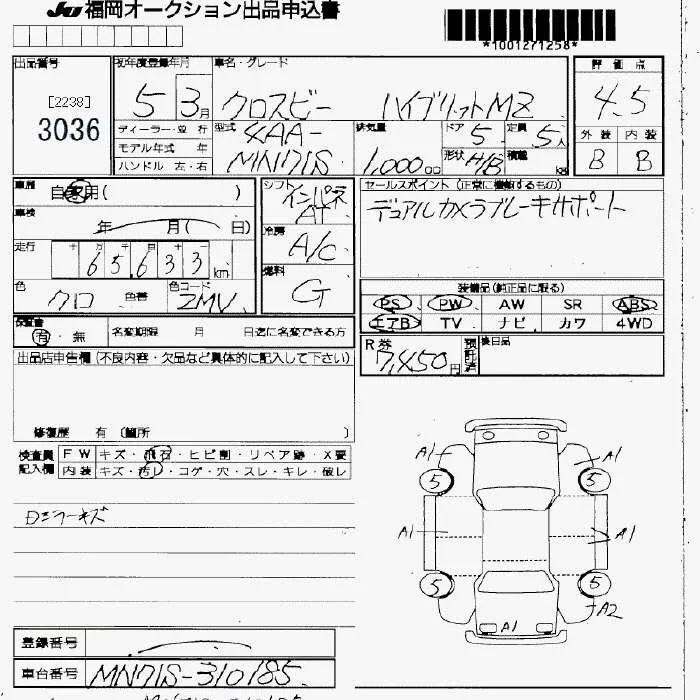 JU 福岡オークション出品申込書
*1001271258*
出品番号 [2238] 3036
初年度登録年月 5 3月
車名・グレード クロスビー ハイブリットMZ
評価点 4.5
ディーラー・並行
モデル年式 年
ハンドル 左・右
型式 4AA- MN71S
排気量 1,000cc
ドア 5
定員 5人
形状 H/B
積載 kg
外装 内装
B B
車歴 自家用( )
車検 年 月( 日)
走行 十 万 千 百 十 65,633 km
色 クロ 色替 色コード ZMV
シフト インパネAT
冷房 A/C
燃料 G
セールスポイント (正常に機能するもの)
デュアルカメラブレーキサポート
装備品(純正品に限る)
PS PW AW SR ABS
エアB TV ナビ カワ 4WD
保証書 有・無 名変期限 月 日迄に名変できる方
R券 7,450円 預託済 後日品
出品店申告欄(不良内容・欠品など具体的に記入して下さい)
修復歴 有 (箇所 )
検査員記入欄
FW キズ・飛石・ヒビ割・リペア跡・X要
内装 キズ・汚レ・コゲ・穴・スレ・キレ・破レ
Dミラーキズ
A1 A1
5 5
A1 A1
5 5
A1 A2
登録番号
車台番号 MN71S-310185